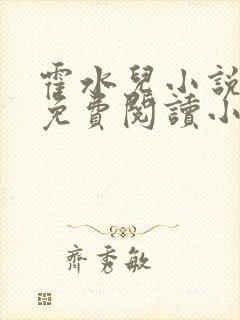 霍水兒小說
免費閱讀小
齊秀敏